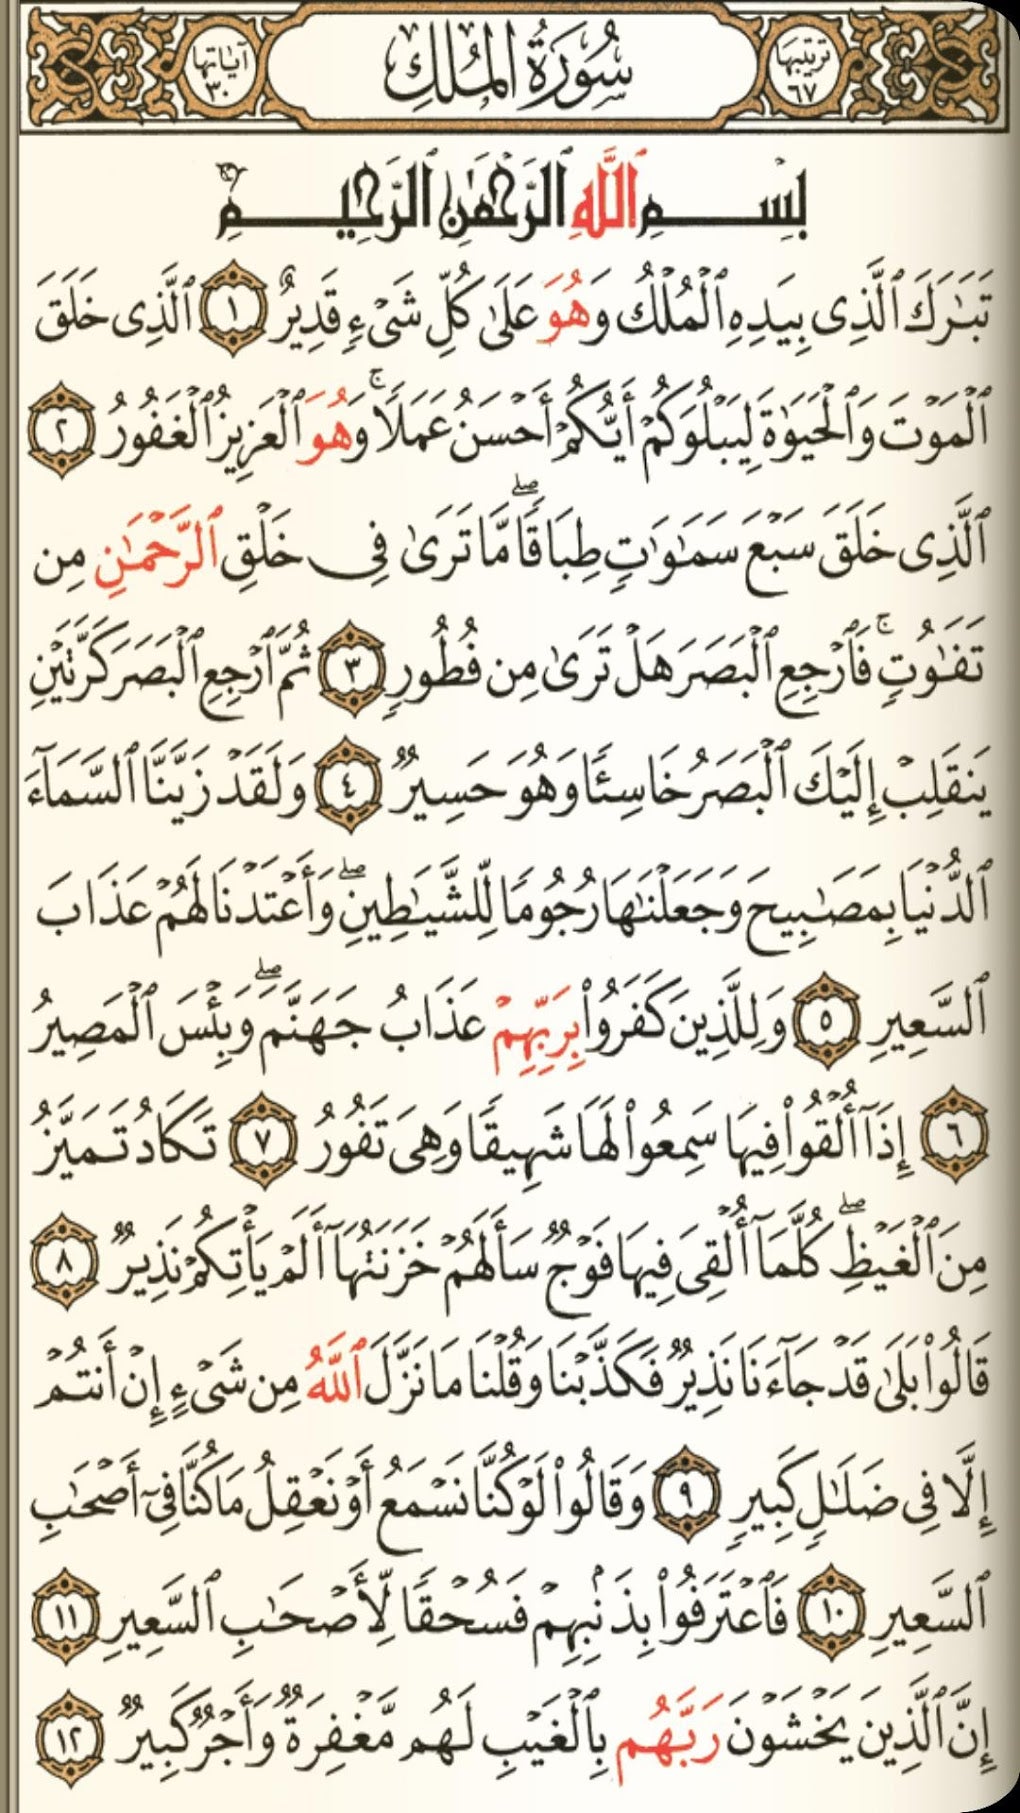 ترتيبها ٦٧
سُورَةُ المُلْكِ
آيَاتها ٣٠
بِسْمِ ٱللَّهِ ٱلرَّحْمَٰنِ ٱلرَّحِيمِ
تَبَٰرَكَ ٱلَّذِى بِيَدِهِ ٱلْمُلْكُ وَهُوَ عَلَىٰ كُلِّ شَىْءٍ قَدِيرٌ ١ ٱلَّذِى خَلَقَ
ٱلْمَوْتَ وَٱلْحَيَوٰةَ لِيَبْلُوَكُمْ أَيُّكُمْ أَحْسَنُ عَمَلًا ۚ وَهُوَ ٱلْعَزِيزُ ٱلْغَفُورُ ٢
ٱلَّذِى خَلَقَ سَبْعَ سَمَٰوَٰتٍ طِبَاقًا ۖ مَّا تَرَىٰ فِى خَلْقِ ٱلرَّحْمَٰنِ مِن
تَفَٰوُتٍ ۖ فَٱرْجِعِ ٱلْبَصَرَ هَلْ تَرَىٰ مِن فُطُورٍ ٣ ثُمَّ ٱرْجِعِ ٱلْبَصَرَ كَرَّتَيْنِ
يَنقَلِبْ إِلَيْكَ ٱلْبَصَرُ خَاسِئًا وَهُوَ حَسِيرٌ ٤ وَلَقَدْ زَيَّنَّا ٱلسَّمَآءَ
ٱلدُّنْيَا بِمَصَٰبِيحَ وَجَعَلْنَٰهَا رُجُومًا لِّلشَّيَٰطِينِ ۖ وَأَعْتَدْنَا لَهُمْ عَذَابَ
ٱلسَّعِيرِ ٥ وَلِلَّذِينَ كَفَرُوا۟ بِرَبِّهِمْ عَذَابُ جَهَنَّمَ ۖ وَبِئْسَ ٱلْمَصِيرُ
٦ إِذَآ أُلْقُوا۟ فِيهَا سَمِعُوا۟ لَهَا شَهِيقًا وَهِىَ تَفُورُ ٧ تَكَادُ تَمَيَّزُ
مِنَ ٱلْغَيْظِ ۖ كُلَّمَآ أُلْقِىَ فِيهَا فَوْجٌ سَأَلَهُمْ خَزَنَتُهَآ أَلَمْ يَأْتِكُمْ نَذِيرٌ ٨
قَالُوا۟ بَلَىٰ قَدْ جَآءَنَا نَذِيرٌ فَكَذَّبْنَا وَقُلْنَا مَا نَزَّلَ ٱللَّهُ مِن شَىْءٍ إِنْ أَنتُمْ
إِلَّا فِى ضَلَٰلٍ كَبِيرٍ ٩ وَقَالُوا۟ لَوْ كُنَّا نَسْمَعُ أَوْ نَعْقِلُ مَا كُنَّا فِىٓ أَصْحَٰبِ
ٱلسَّعِيرِ ١٠ فَٱعْتَرَفُوا۟ بِذَنۢبِهِمْ فَسُحْقًا لِّأَصْحَٰبِ ٱلسَّعِيرِ ١١
إِنَّ ٱلَّذِينَ يَخْشَوْنَ رَبَّهُم بِٱلْغَيْبِ لَهُم مَّغْفِرَةٌ وَأَجْرٌ كَبِيرٌ ١٢